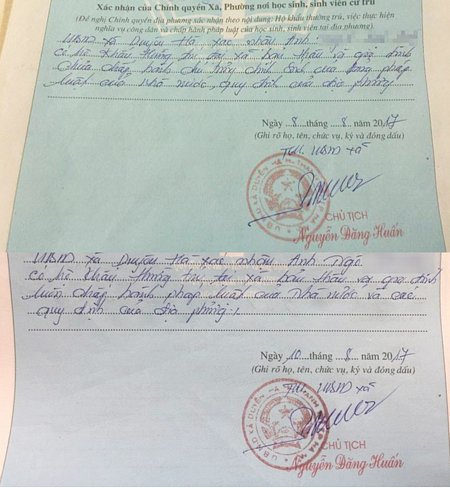 Xác nhận của Chính quyền Xã, Phường nơi học sinh, sinh viên cư trú
(Đề nghị Chính quyền địa phương xác nhận theo nội dung: Hộ khẩu thường trú, việc thực hiện
nghĩa vụ công dân và chấp hành pháp luật của học sinh, sinh viên tại địa phương)
UBND xã Duyên Hà xác nhận Anh
Có hộ khẩu thường trú tại xã bản thân và gia đình
Chưa chấp hành chủ trương chính sách của Đảng pháp
luật của nhà nước quy định của địa phương
Ngày 8 tháng 8 năm 2017
(Ghi rõ họ, tên, chức vụ, ký và đóng dấu)
TM. UBND xã
CHỦ TỊCH
Nguyễn Đăng Huấn
UBND xã Duyên Hà xác nhận Anh Ngô
Có hộ khẩu thường trú tại xã bản thân và gia đình
luôn chấp hành pháp luật của nhà nước và các
quy định của địa phương.
Ngày 10 tháng 8 năm 2017
(Ghi rõ họ, tên, chức vụ, ký và đóng dấu)
TM. UBND xã
CHỦ TỊCH
Nguyễn Đăng Huấn